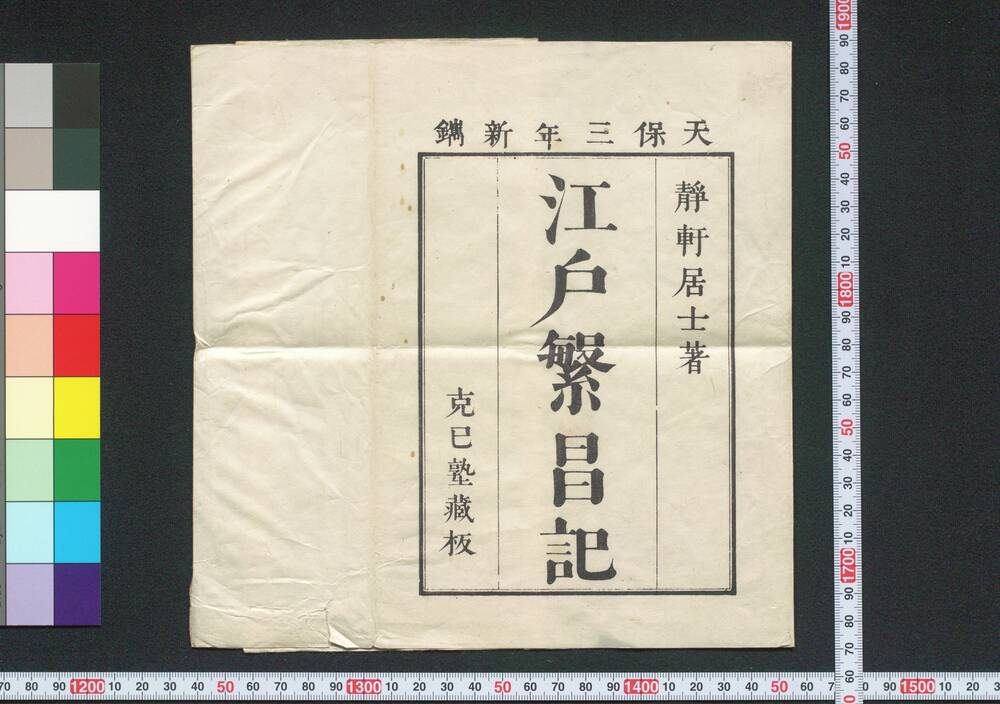 天保三年新鐫
靜軒居士著
江戶繁昌記
克已塾藏板
70 80 90 1200 10 20 30 40 50 60 70 80 90 1300 10 20 30 40 50 60 70 80 90 1400 10 20 30 40 50 60 7
90 1500 10 20 3
1900 90 80 70 60 50 40 30 20 10 1800 90 80 70 60 50 40 30 20 10 1700 90 80 70 60